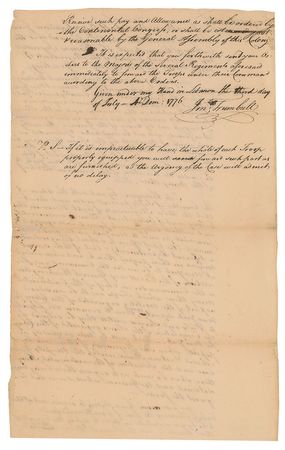 receive such pay and Allowance as shall be ordered by
the Continental Congress, or shall be
reasonable by the General Assembly of this Colony
It is expected that you forthwith send your Or
ders to the Majors of the several Regiments aforesaid
immediately to forward the Troops under their Command
according to the above Orders.
Given under my Hand in Lebanon the third day
of July Dom: 1776
Jon; Trumbull
P. S. If it is impracticable to have the whole of each Troop
properly equipped you will such part as
are furnished, as the Urgency of the Case will admit
of no delay.